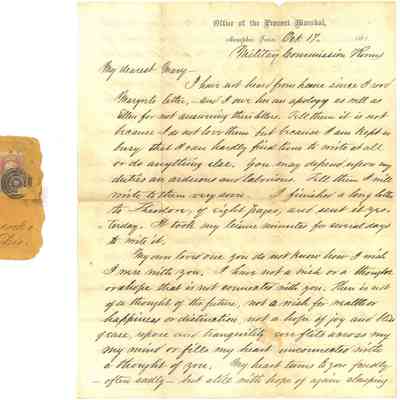 Office of the Provost Marshal,
Memphis, Tenn. Oct 17. 186
Military Commission Rooms
My dearest Mary—
I have not heard from home since I rec'd
Margie's letter,—and I owe her an apology as well as
for not answering them before. Tell them it is not
because I do not love them but because I am kept so
busy that I can hardly find time to write at all
or do anything else. You may depend upon my
duties are arduous and laborious. Tell them I will
write to them very soon. I finished a long letter
to Theodore, of eight pages, and sent it yes-
terday. It took my leisure minutes for several days
to write it.
My own loved one you do not know how I wish
I were with you. I have not a wish or a thought
or a hope that is not connected with you. There is not
a thought of the future, not a wish for wealth or
happiness or distinction, not a hope of joy and bliss
of ease, repose and tranquility
my mind or fills my heart unconnected with
a thought of you. My heart turns to you fondly
—often sadly—but still with hope of again clasping